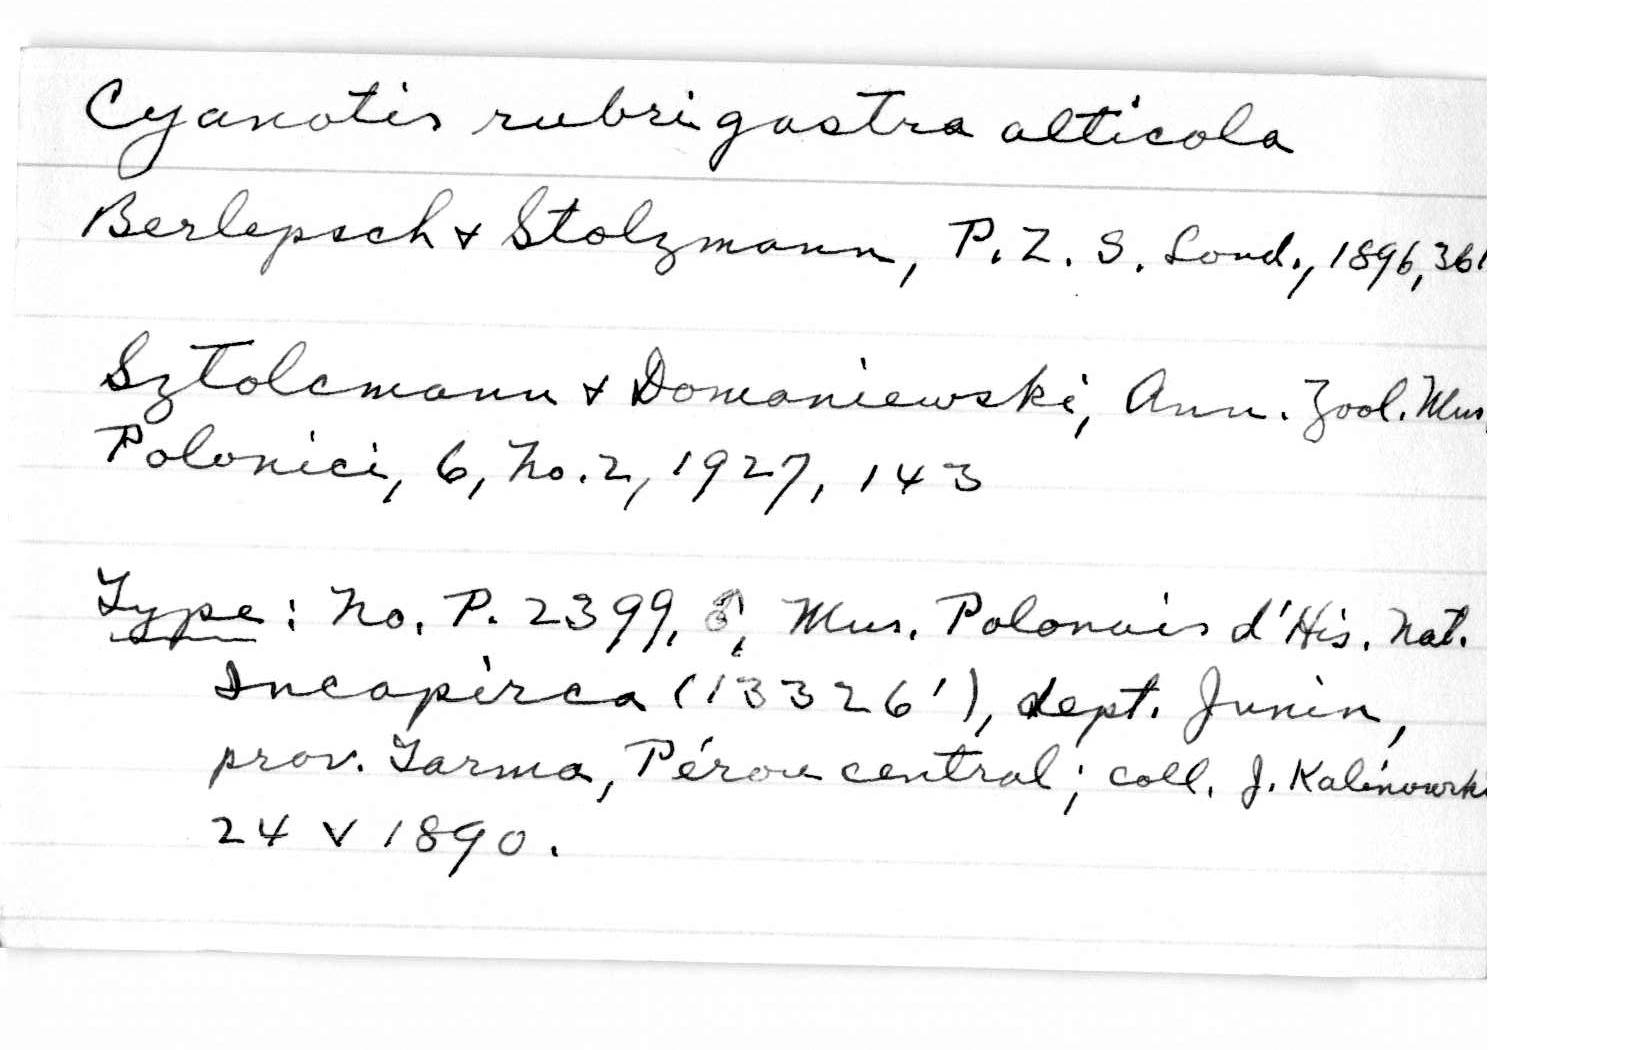 Cyanotis rubrigastra alticola
Berlepsch & Stolzmann, P. Z. S. Lond., 1896, 361
Sztolcmann & Domaniewski, Ann. Zool. Mus.
Polonici, 6, No. 2, 1927, 143
Type: No. P. 2399, ♂, Mus. Polonais d'His. Nat.
Incapirca (13326'), dept. Junin,
prov. Tarma, Pérou central; coll. J. Kalinowski
24 V 1890.